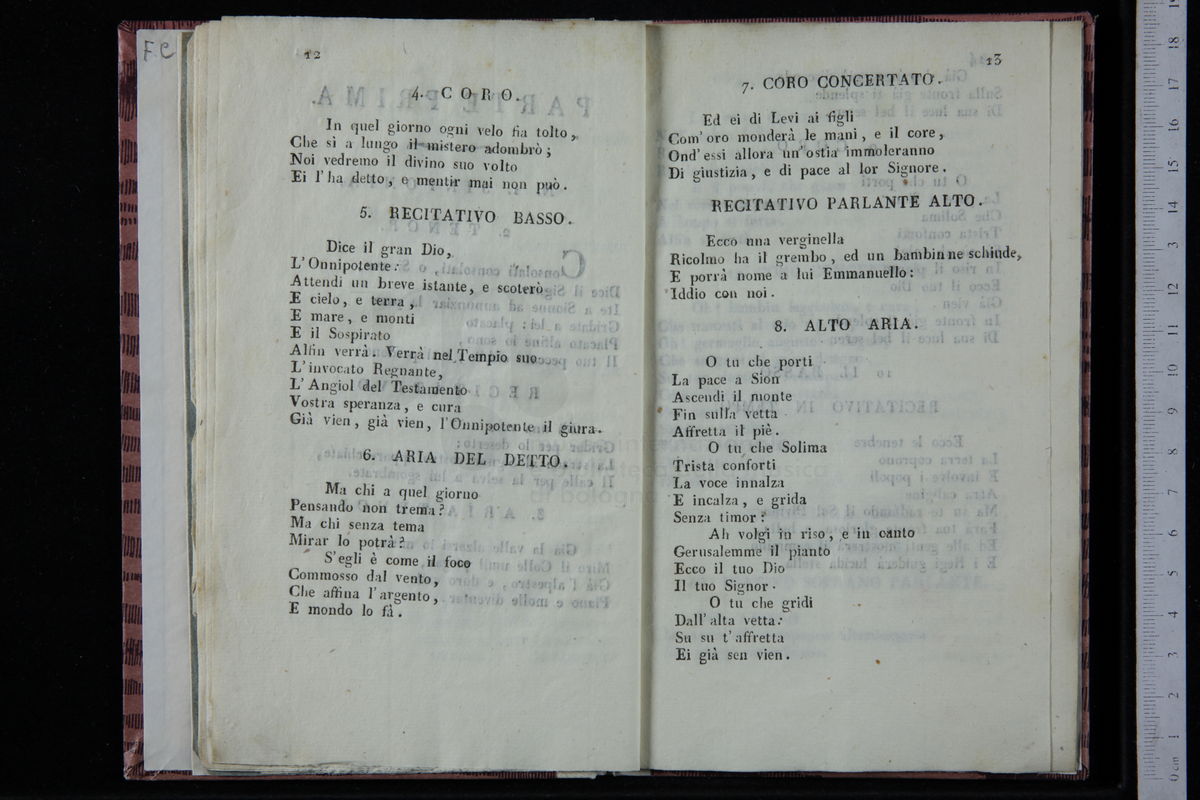 F.C
12
4. CORO.
In quel giorno ogni velo fia tolto,
Che sì a lungo il mistero adombrò;
Noi vedremo il divino suo volto
Ei l'ha detto, e mentir mai non può.
5. RECITATIVO BASSO.
Dice il gran Dio,
L'Onnipotente:
Attendi un breve istante, e scoterò
E cielo, e terra,
E mare, e monti
E il Sospirato
Alfin verrà. Verrà nel Tempio suo
L'invocato Regnante,
L'Angiol del Testamento
Vostra speranza, e cura
Già vien, già vien, l'Onnipotente il giura.
6. ARIA DEL DETTO.
Ma chi a quel giorno
Pensando non trema?
Ma chi senza tema
Mirar lo potrà?
S'egli è come il foco
Commosso dal vento,
Che affina l'argento,
E mondo lo fà.
13
7. CORO CONCERTATO.
Ed ei di Levi ai figli
Com'oro monderà le mani, e il core,
Ond'essi allora un'ostia immoleranno
Di giustizia, e di pace al lor Signore.
RECITATIVO PARLANTE ALTO.
Ecco una verginella
Ricolmo ha il grembo, ed un bambin ne schiude,
E porrà nome a lui Emmanuello:
Iddio con noi.
8. ALTO ARIA.
O tu che porti
La pace a Sion
Ascendi il monte
Fin sulla vetta
Affretta il piè.
O tu che Solima
Trista conforti
La voce innalza
E incalza, e grida
Senza timor:
Ah volgi in riso, e in canto
Gerusalemme il pianto
Ecco il tuo Dio
Il tuo Signor.
O tu che gridi
Dall'alta vetta:
Su su t'affretta
Ei già sen vien.